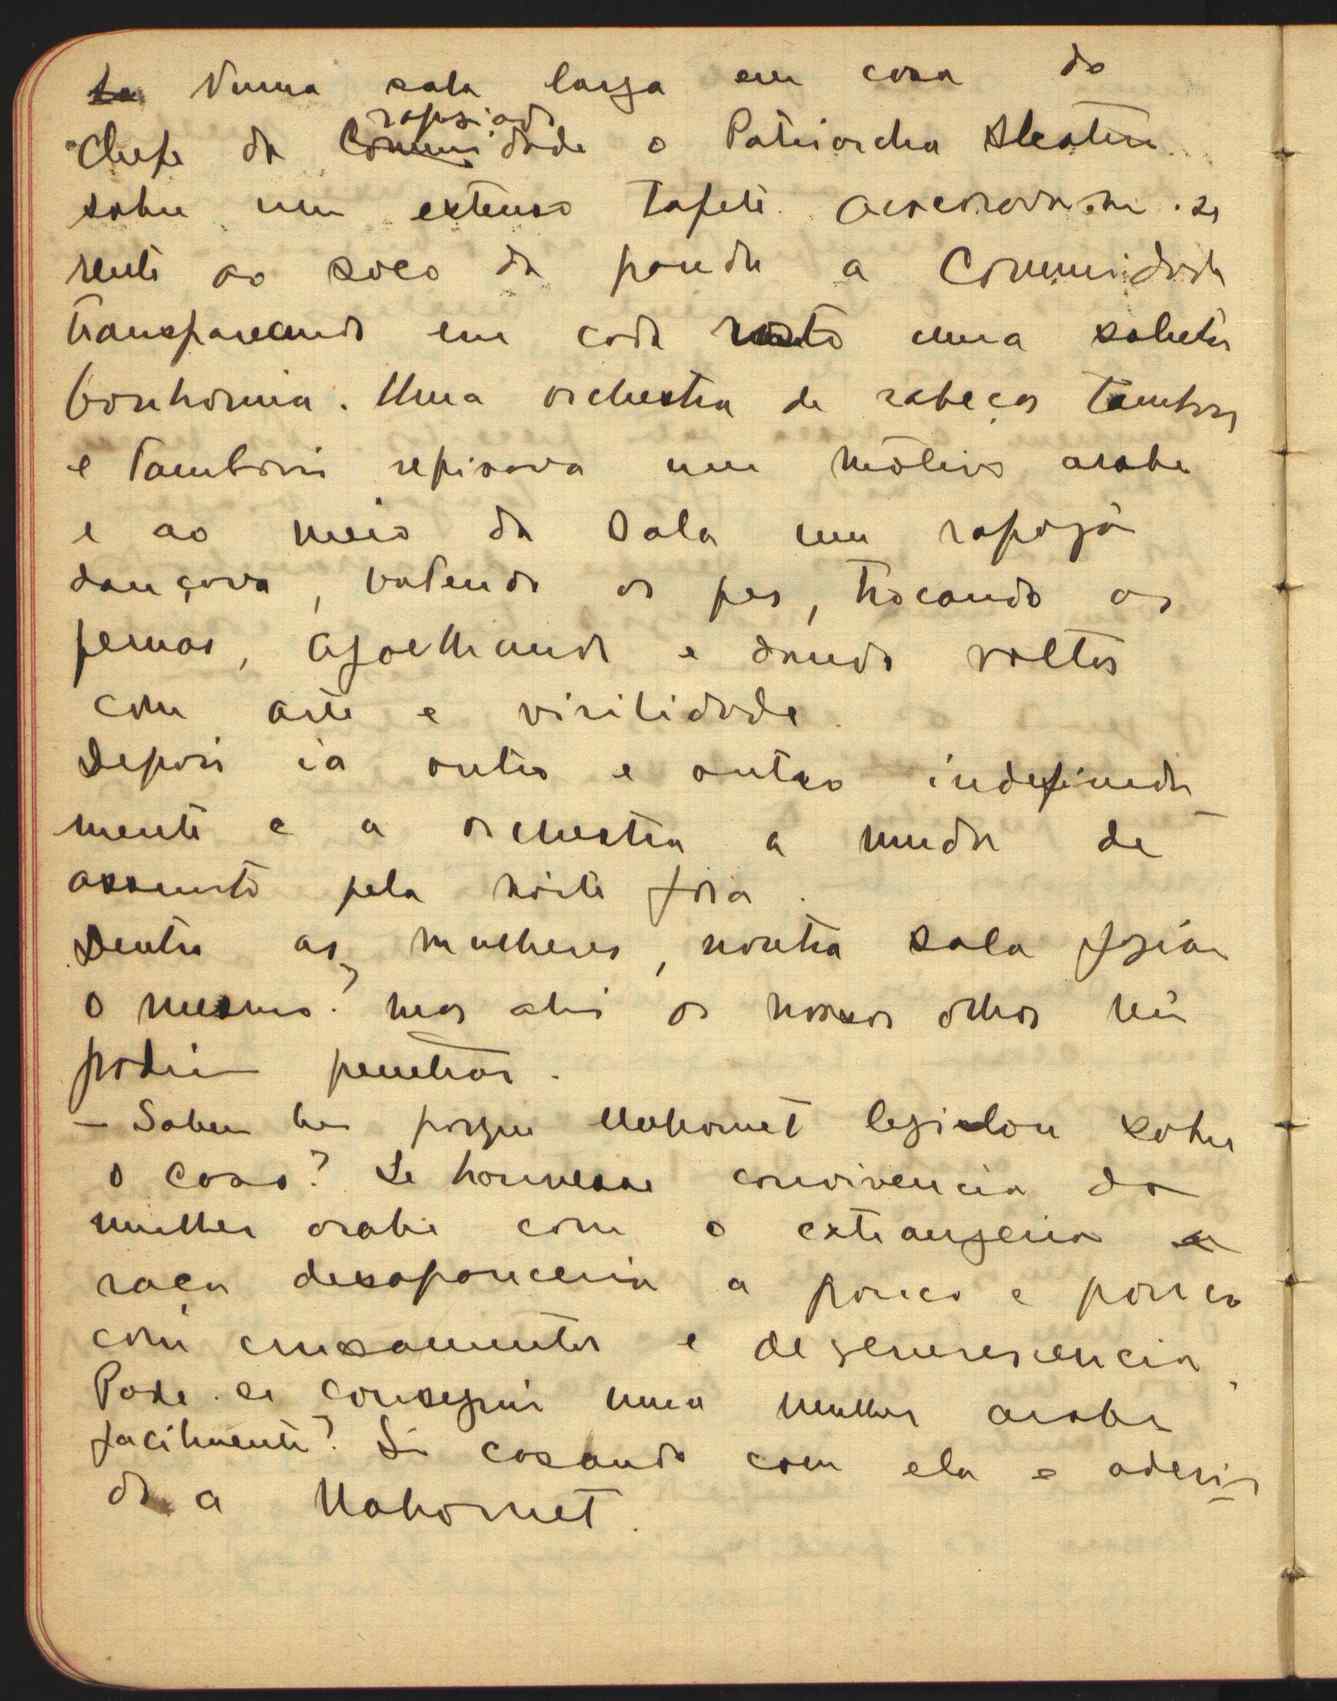 Numa sala larga em casa do
rapaziada
Chefe da Communidade o Patriarcha
sobre um extenso tapete acocoravam-se
rente ao soco da parede a Communidade
transparecendo em cada rosto uma
bonhomia. Uma orchestra de rabecas tambores
e tamboris repisava um motivo arabe
e ao meio da sala um rapagão
dançava, batendo os pés, trocando as
pernas, ajoelhando e dando voltas
com arte e virilidade.
Depois ia outro e outro indefinida
mente e a orchestra a mudar de
assunto pela noite fora.
Dentro as mulheres, noutra sala fazião
o mesmo? mas ahi os nossos olhos não
podião penetrar.
— Sabem porque Mahomet legislou sobre
o caso? Se houvesse convivencia da
mulher arabe com o extrangeiro a
raça desapareceria a pouco e pouco
com crusamentos e degenerescencia.
Pode-se conseguir uma mulher arabe
facilmente? Só casando com ela e aderin
do a Mahomet.